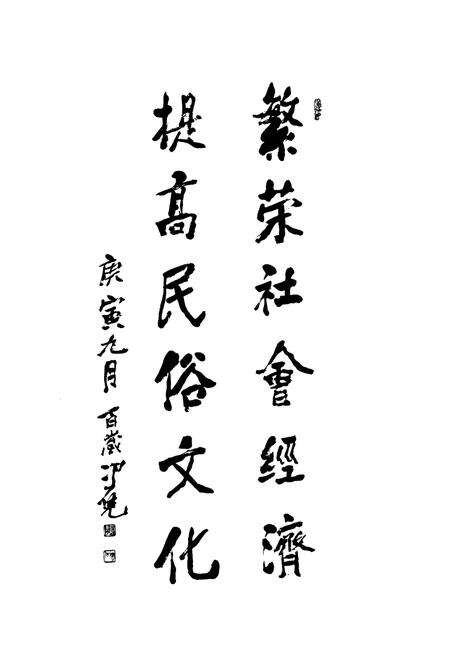 繁荣社會經濟
提髙民俗文化
庚寅九月 百歲